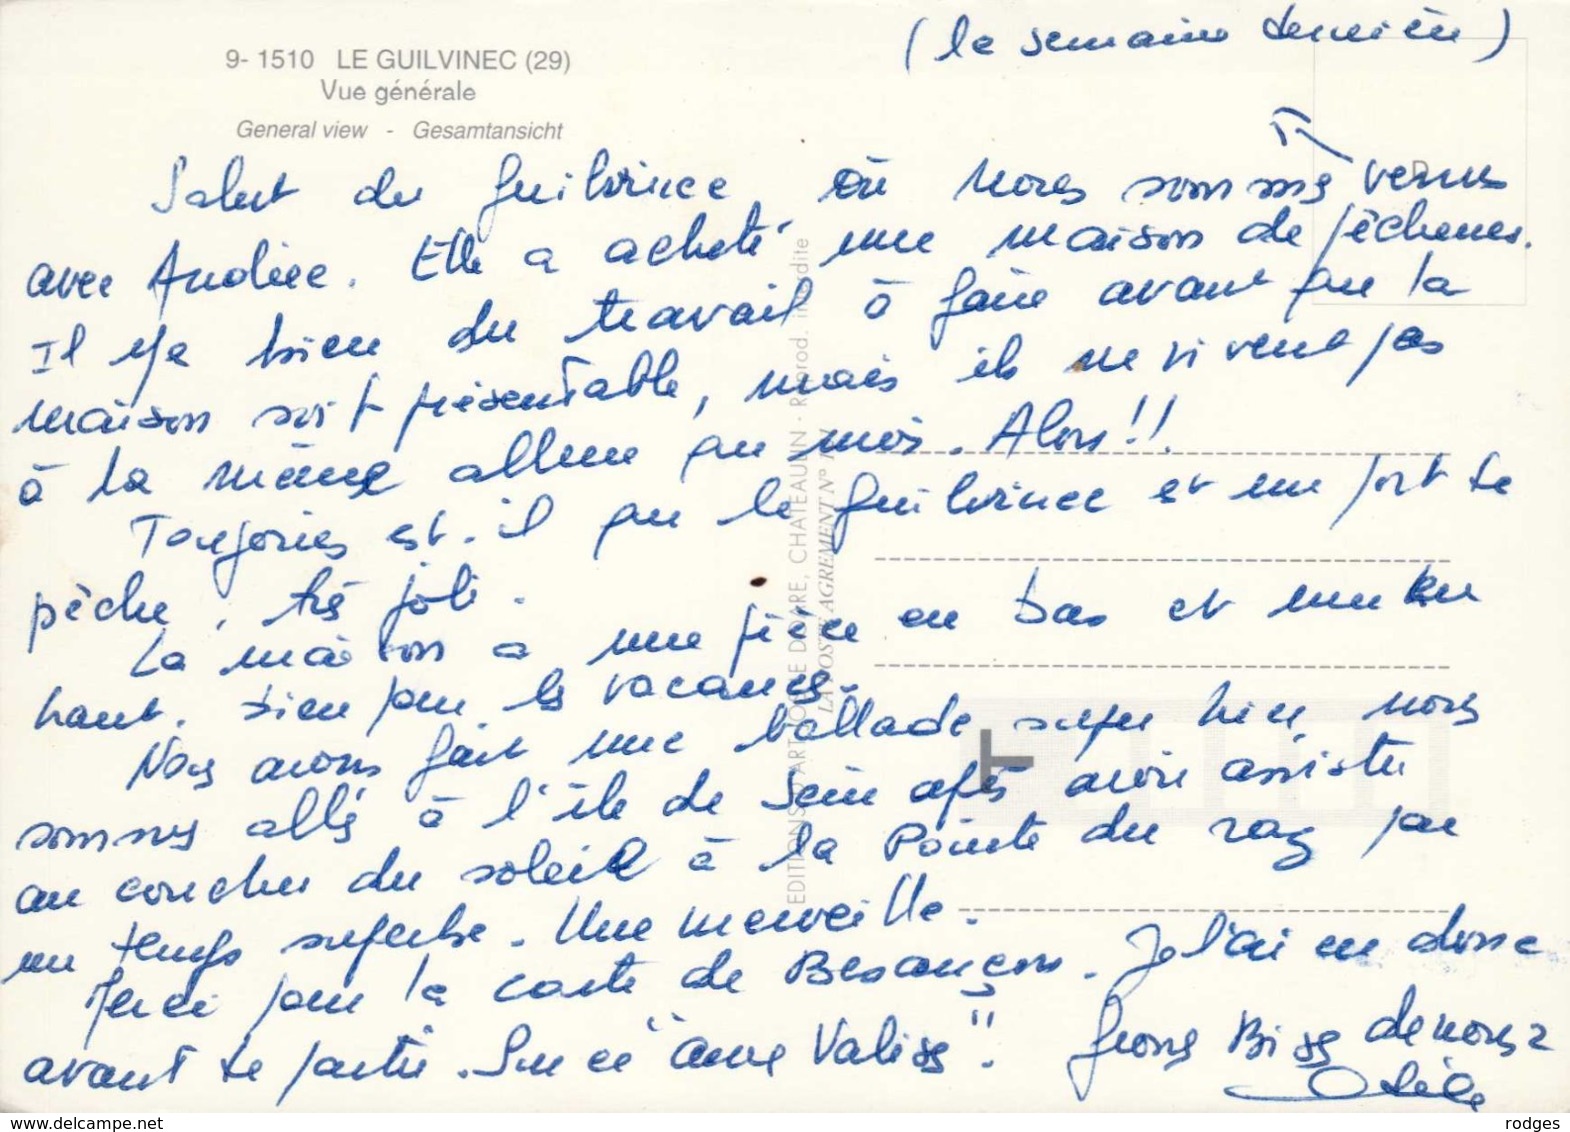 9- 1510 LE GUILVINEC (29)
Vue générale
General view - Gesamtansicht
(la semaine dernière)
Salut du Guilvinec, où nous sommes venus
avec Andrée. Elle a acheté une maison de pêcheurs.
Il y a bien du travail à faire avant que la
maison soit présentable, mais ils ne vivent pas
à la même allure que moi. Alors!!.
Toujours est-il que le Guilvinec est un port de
pêche, très joli.
La maison a une pièce en bas et une en
haut. Bien pour les vacances.
Nous avons fait une ballade super hier, nous
sommes allés à l'île de Sein après avoir assisté
au coucher du soleil à la Pointe du raz par
un temps superbe. Une merveille.
Merci pour la carte de Besançon. Je l'ai eu donc
avant de partir. Sur ce "aux Valises". Grosses Bises de nous 2
Odile
EDITIONS D'ART JOS LE DOARE, CHATEAULIN - Reprod. interdite
LA POSTE AGREMENT N°
rodges
www.delcampe.net